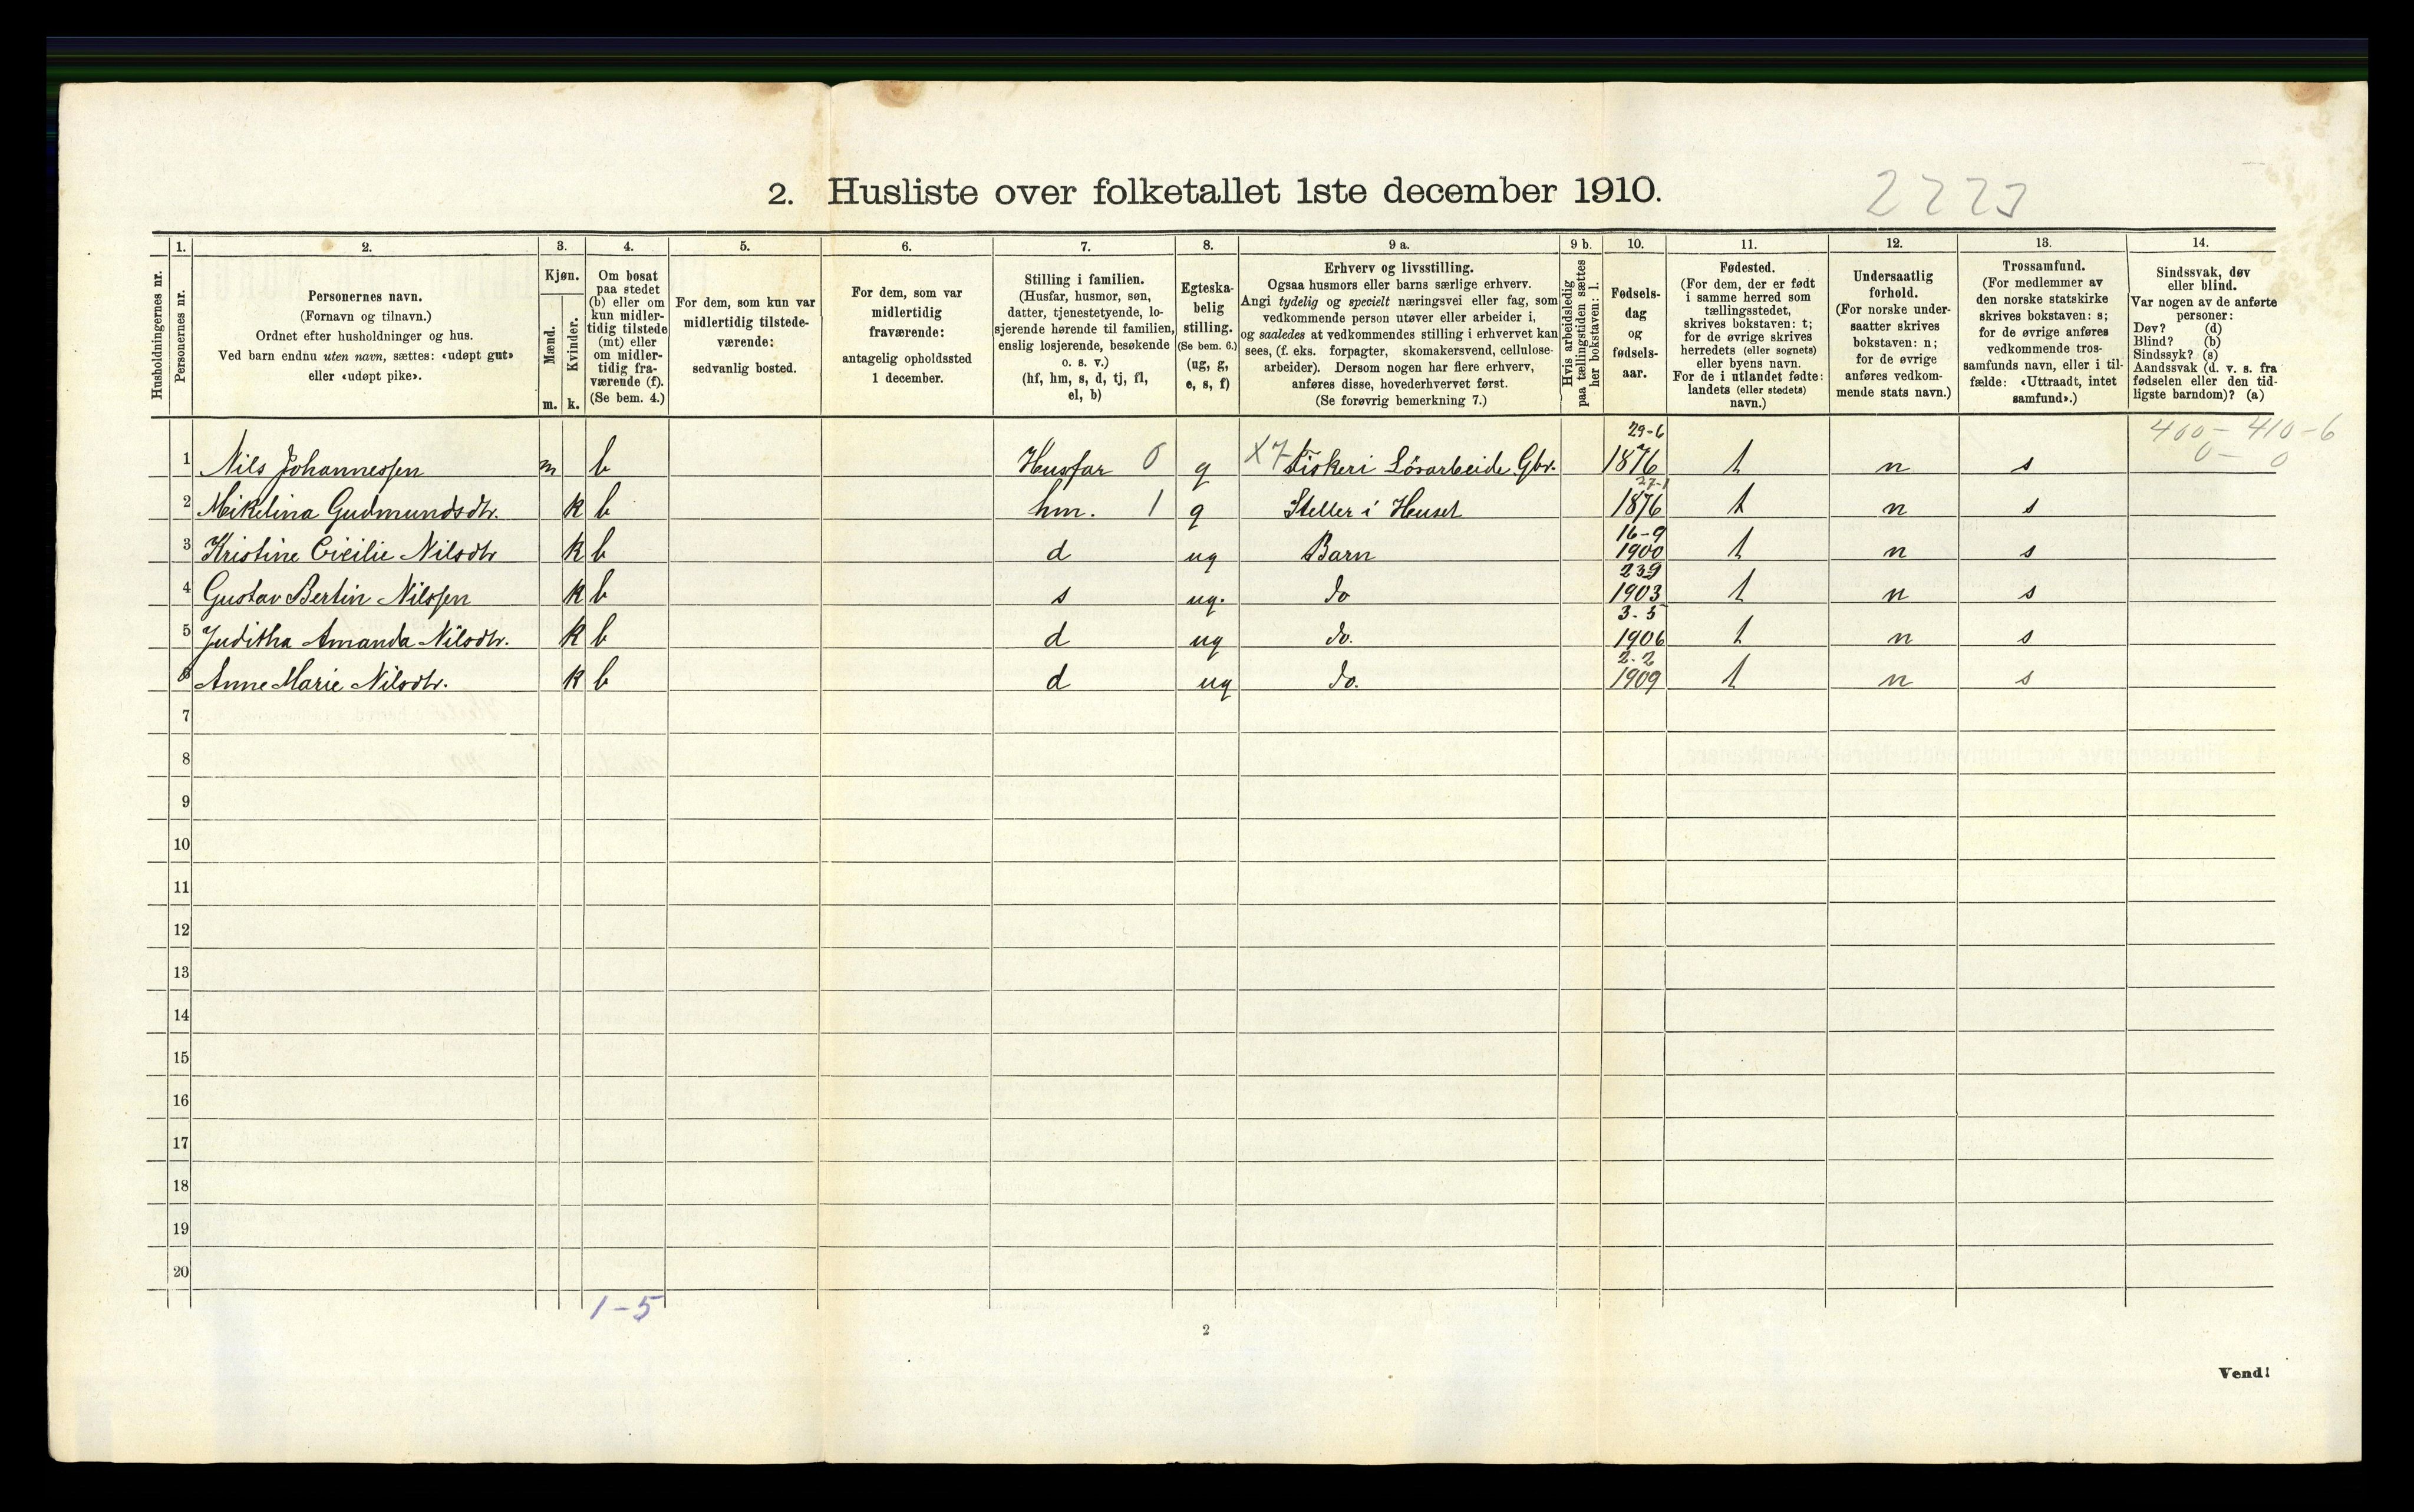 2. Husliste over folketallet 1ste december 1910.
2223
1. 2. 3. 4. 5. 6. 7. 8. 9 a. 9 b. 10. 11. 12. 13. 14.
Husholdningernes nr.
Personernes nr.
Personernes navn.
(Fornavn og tilnavn.)
Ordnet efter husholdninger og hus.
Ved barn endnu uten navn, sættes: «udøpt gut»
eller «udøpt pike».
Kjøn.
Mænd.
Kvinder.
m. k.
Om bosat
paa stedet
(b) eller om
kun midler-
tidig tilstede
(mt) eller
om midler-
tidig fra-
værende (f).
(Se bem. 4.)
For dem, som kun var
midlertidig tilstede-
værende:
sedvanlig bosted.
For dem, som var
midlertidig
fraværende:
antagelig opholdssted
1 december.
Stilling i familien.
(Husfar, husmor, søn,
datter, tjenestetyende, lo-
sjerende hørende til familien,
enslig losjerende, besøkende
o. s. v.)
(hf, hm, s, d, tj, fl,
el, b)
Egteska-
belig
stilling.
(Se bem. 6.)
(ug, g,
e, s, f)
Erhverv og livsstilling.
Ogsaa husmors eller barns særlige erhverv.
Angi tydelig og specielt næringsvei eller fag, som
vedkommende person utøver eller arbeider i,
og saaledes at vedkommendes stilling i erhvervet kan
sees, (f. eks. forpagter, skomakersvend, cellulose-
arbeider). Dersom nogen har flere erhverv,
anføres disse, hovederhvervet først.
(Se forøvrig bemerkning 7.)
Hvis arbeidsledig
paa tællingstiden sættes
her bokstaven: l.
Fødsels-
dag
og
fødsels-
aar.
Fødested.
(For dem, der er født
i samme herred som
tællingsstedet,
skrives bokstaven: t;
for de øvrige skrives
herredets (eller sognets)
eller byens navn.
For de i utlandet fødte:
landets (eller stedets)
navn.)
Undersaatlig
forhold.
(For norske under-
saatter skrives
bokstaven: n;
for de øvrige
anføres vedkom-
mende stats navn.)
Trossamfund.
(For medlemmer av
den norske statskirke
skrives bokstaven: s;
for de øvrige anføres
vedkommende tros-
samfunds navn, eller i til-
fælde: «Uttraadt, intet
samfund».)
Sindssvak, døv
eller blind.
Var nogen av de anførte
personer:
Døv? (d)
Blind? (b)
Sindssyk? (s)
Aandssvak (d. v. s. fra
fødselen eller den tid-
ligste barndom)? (a)
400 - 410 - 6
0 - 0
29-6
1 Nils Johannessen m b Husfar 0 g X7 Fiskeri Lösarbeide Gbr. 1876 t n s
27-1
2 Mikelina Gudmundsdtr. k b hm. 1 g Steller i Huset 1876 t n s
16-9
3 Kristine Cicilie Nilsdtr k b d ug Barn 1900 t n s
23 9
4 Gustav Bertin Nilssen k b s ug. do 1903 t n s
3-5
5 Juditha Amanda Nilsdtr. k b d ug do. 1906 t n s
2-2
6 Anne Marie Nilsdtr. k b d ug do. 1909 t n s
7
8
9
10
11
12
13
14
15
16
17
18
19
20
1-5
2
Vend!